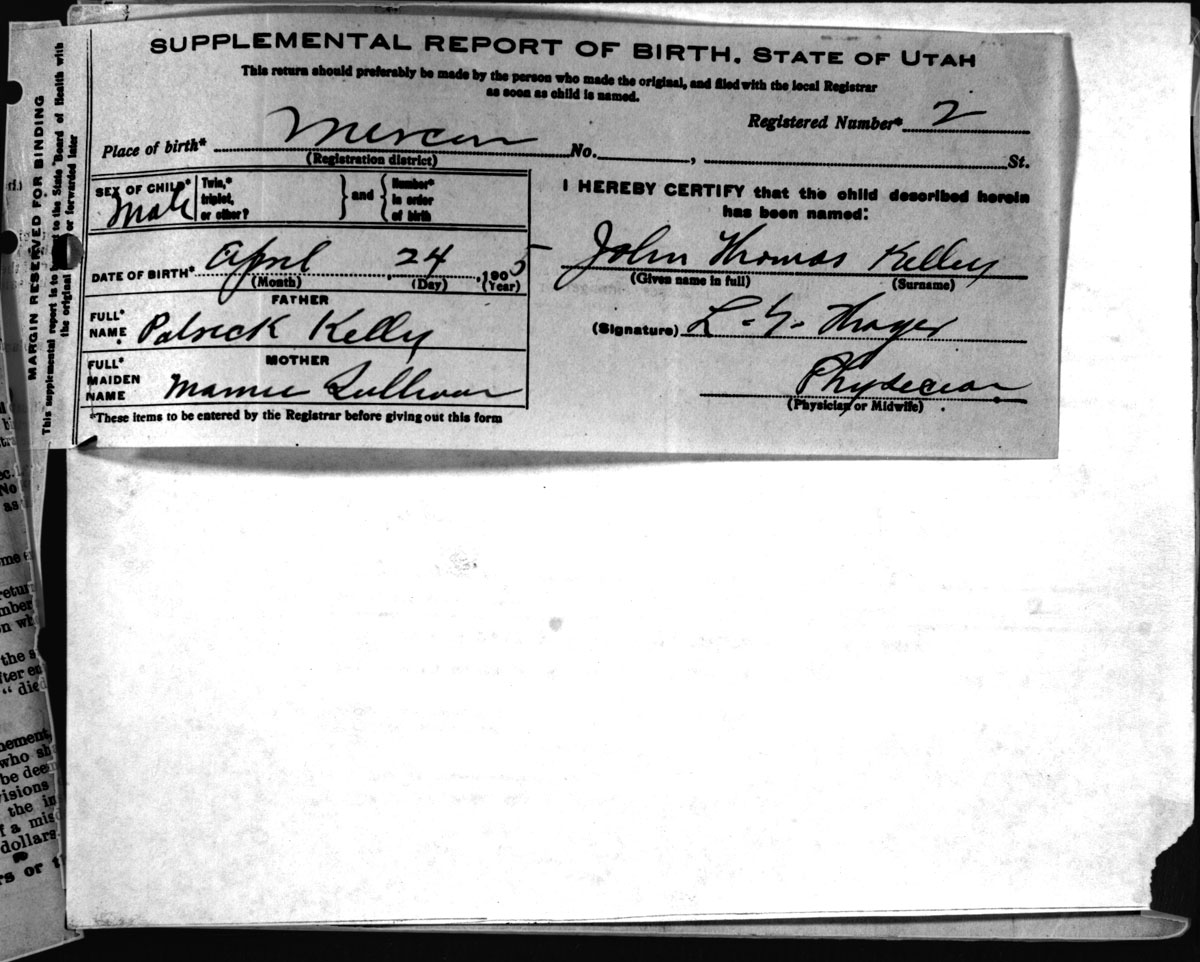 SUPPLEMENTAL REPORT OF BIRTH. STATE OF UTAH
This return should preferably be made by the person who made the original, and filed with the local Registrar
as soon as child is named.
Registered Number* 2
Place of birth* Mercur No. , St.
(Registration district)
SEX OF CHILD* Male
Twin,* triplet, or other? } and { Number* in order of birth
DATE OF BIRTH* April 24 1905
(Month) (Day) (Year)
FATHER
FULL* NAME Patrick Kelly
MOTHER
FULL* MAIDEN NAME Mamie Sullivan
*These items to be entered by the Registrar before giving out this form
I HEREBY CERTIFY that the child described herein
has been named:
John Thomas Kelley
(Given name in full) (Surname)
(Signature) Thayer
Physician
(Physician or Midwife)
MARGIN RESERVED FOR BINDING
This supplemental report is to be to the State Board of Health with
the original or forwarded later
No
as
the s
" died
who sh
be dee
visions
the in
f a mis
dollars